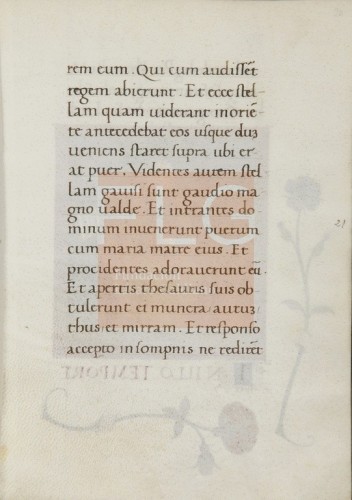 rem eum. Qui cum audissēt
regem abierunt. Et ecce stel-
lam quam viderant in oriē-
te antecedebat eos usque duʒ
veniens staret supra ubi er-
at puer. Videntes autem stel-
lam gauisi sunt gaudio ma-
gno ualde. Et intrantes do-
minum inuenerunt puerum
cum maria matre eius. Et
procidentes adorauerunt eū.
Et apertis thesauris suis ob-
tulerunt ei munera autuʒ
thus et mirram. Et responso
accepto in sompnis ne redirēt
21
FLG